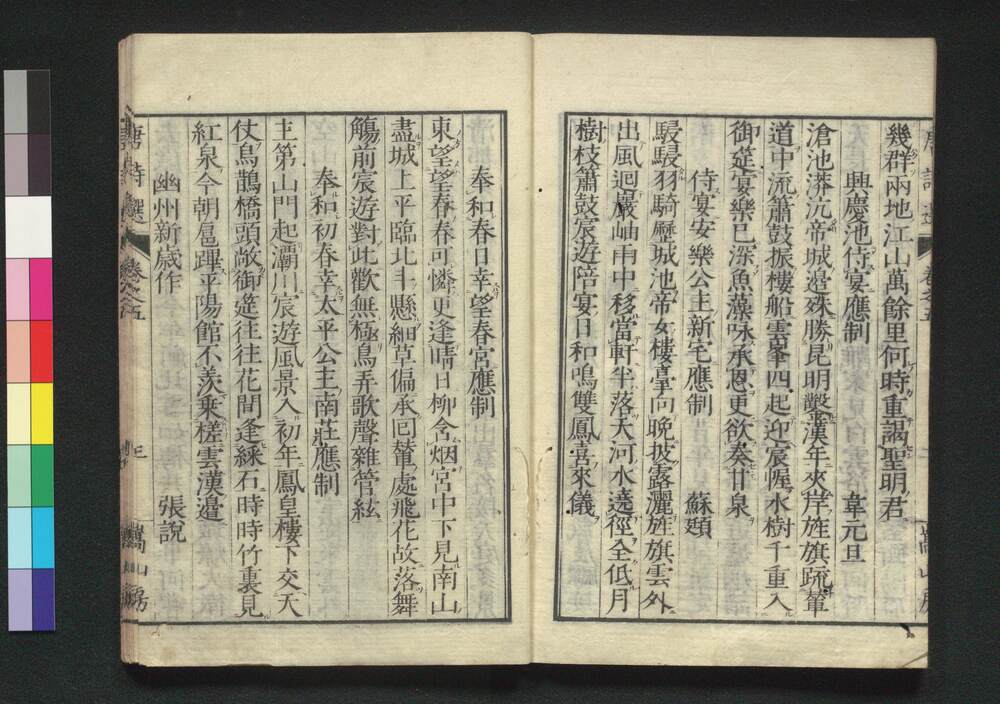 幾群兩地江山萬餘里何時重謁聖明君
興慶池侍宴應制
韋元旦
滄池漭沆帝城邊殊勝昆明鑿漢年夾岸旌旗疏輦
道中流簫鼓振樓船雲峯四起迎宸幄水樹千重入
御筵宴樂已深魚藻咏承恩更欲奏甘泉
侍宴安樂公主新宅應制
蘇頲
駸駸羽騎歷城池帝女樓臺向晚披露灑旌旗雲外
出風迴巖岫雨中移當軒半落天河水遶徑全低月
樹枝簫鼓宸遊陪宴日和鳴雙鳳喜來儀
奉和春日幸望春宮應制
東望望春春可憐更逢晴日柳含烟宮中下見南山
盡城上平臨北斗懸細草偏承回輦處飛花故落舞
觴前宸遊對此歡無極鳥弄歌聲雜管絃
奉和初春幸太平公主南莊應制
主第山門起灞川宸遊風景入初年鳳皇樓下交天
仗烏鵲橋頭敞御筵往往花間逢綵石時時竹裏見
紅泉今朝扈蹕平陽館不羨乗槎雲漢邊
幽州新歲作
張說
唐詩選
卷之五
三
嵩山房